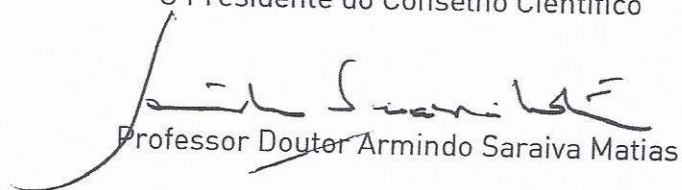 O Presidente do Conselho Científico
Professor Doutor Armindo Saraiva Matias